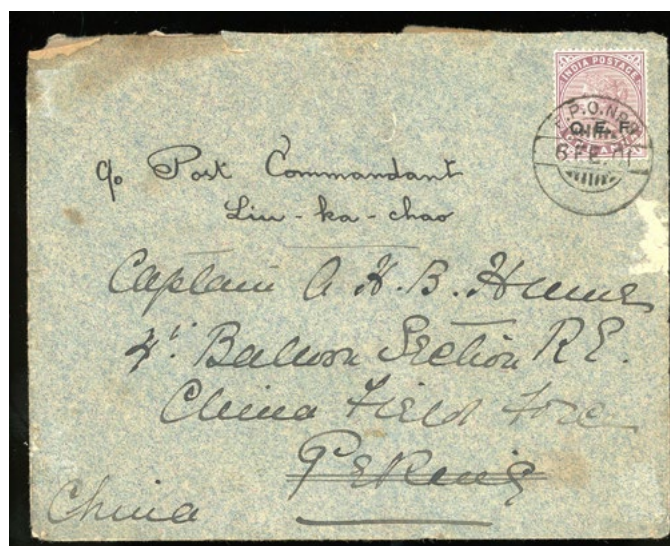 INDIA POSTAGE
F.P.O. No.
C. E. F.
8 FE. 01
c/o Post Commandant
Liu-ka-chao
Captain A H. B. Hume
4th Balloon Section R E.
China Field Force
Peking
China